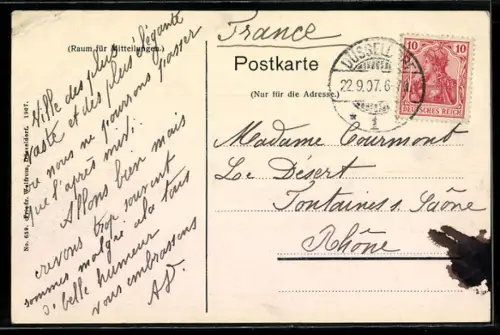 France
(Raum für Mitteilungen.)
Postkarte
(Nur für die Adresse.)
DÜSSELDORF
22.9.07. 6-7
* 1
10 10
DEUTSCHES REICH
Ville des plus
vaste et des plus élégante
où nous ne pourrons passer
que l'après midi.
Allons bien mais
trop souvent
sommes malgré cela tous
de belle humeur
vous embrassons
A.D.
Madame Courmont
Le Désert
Fontaines s. Saône
Rhône
No. 659. Wolfrum, Düsseldorf. 1907.